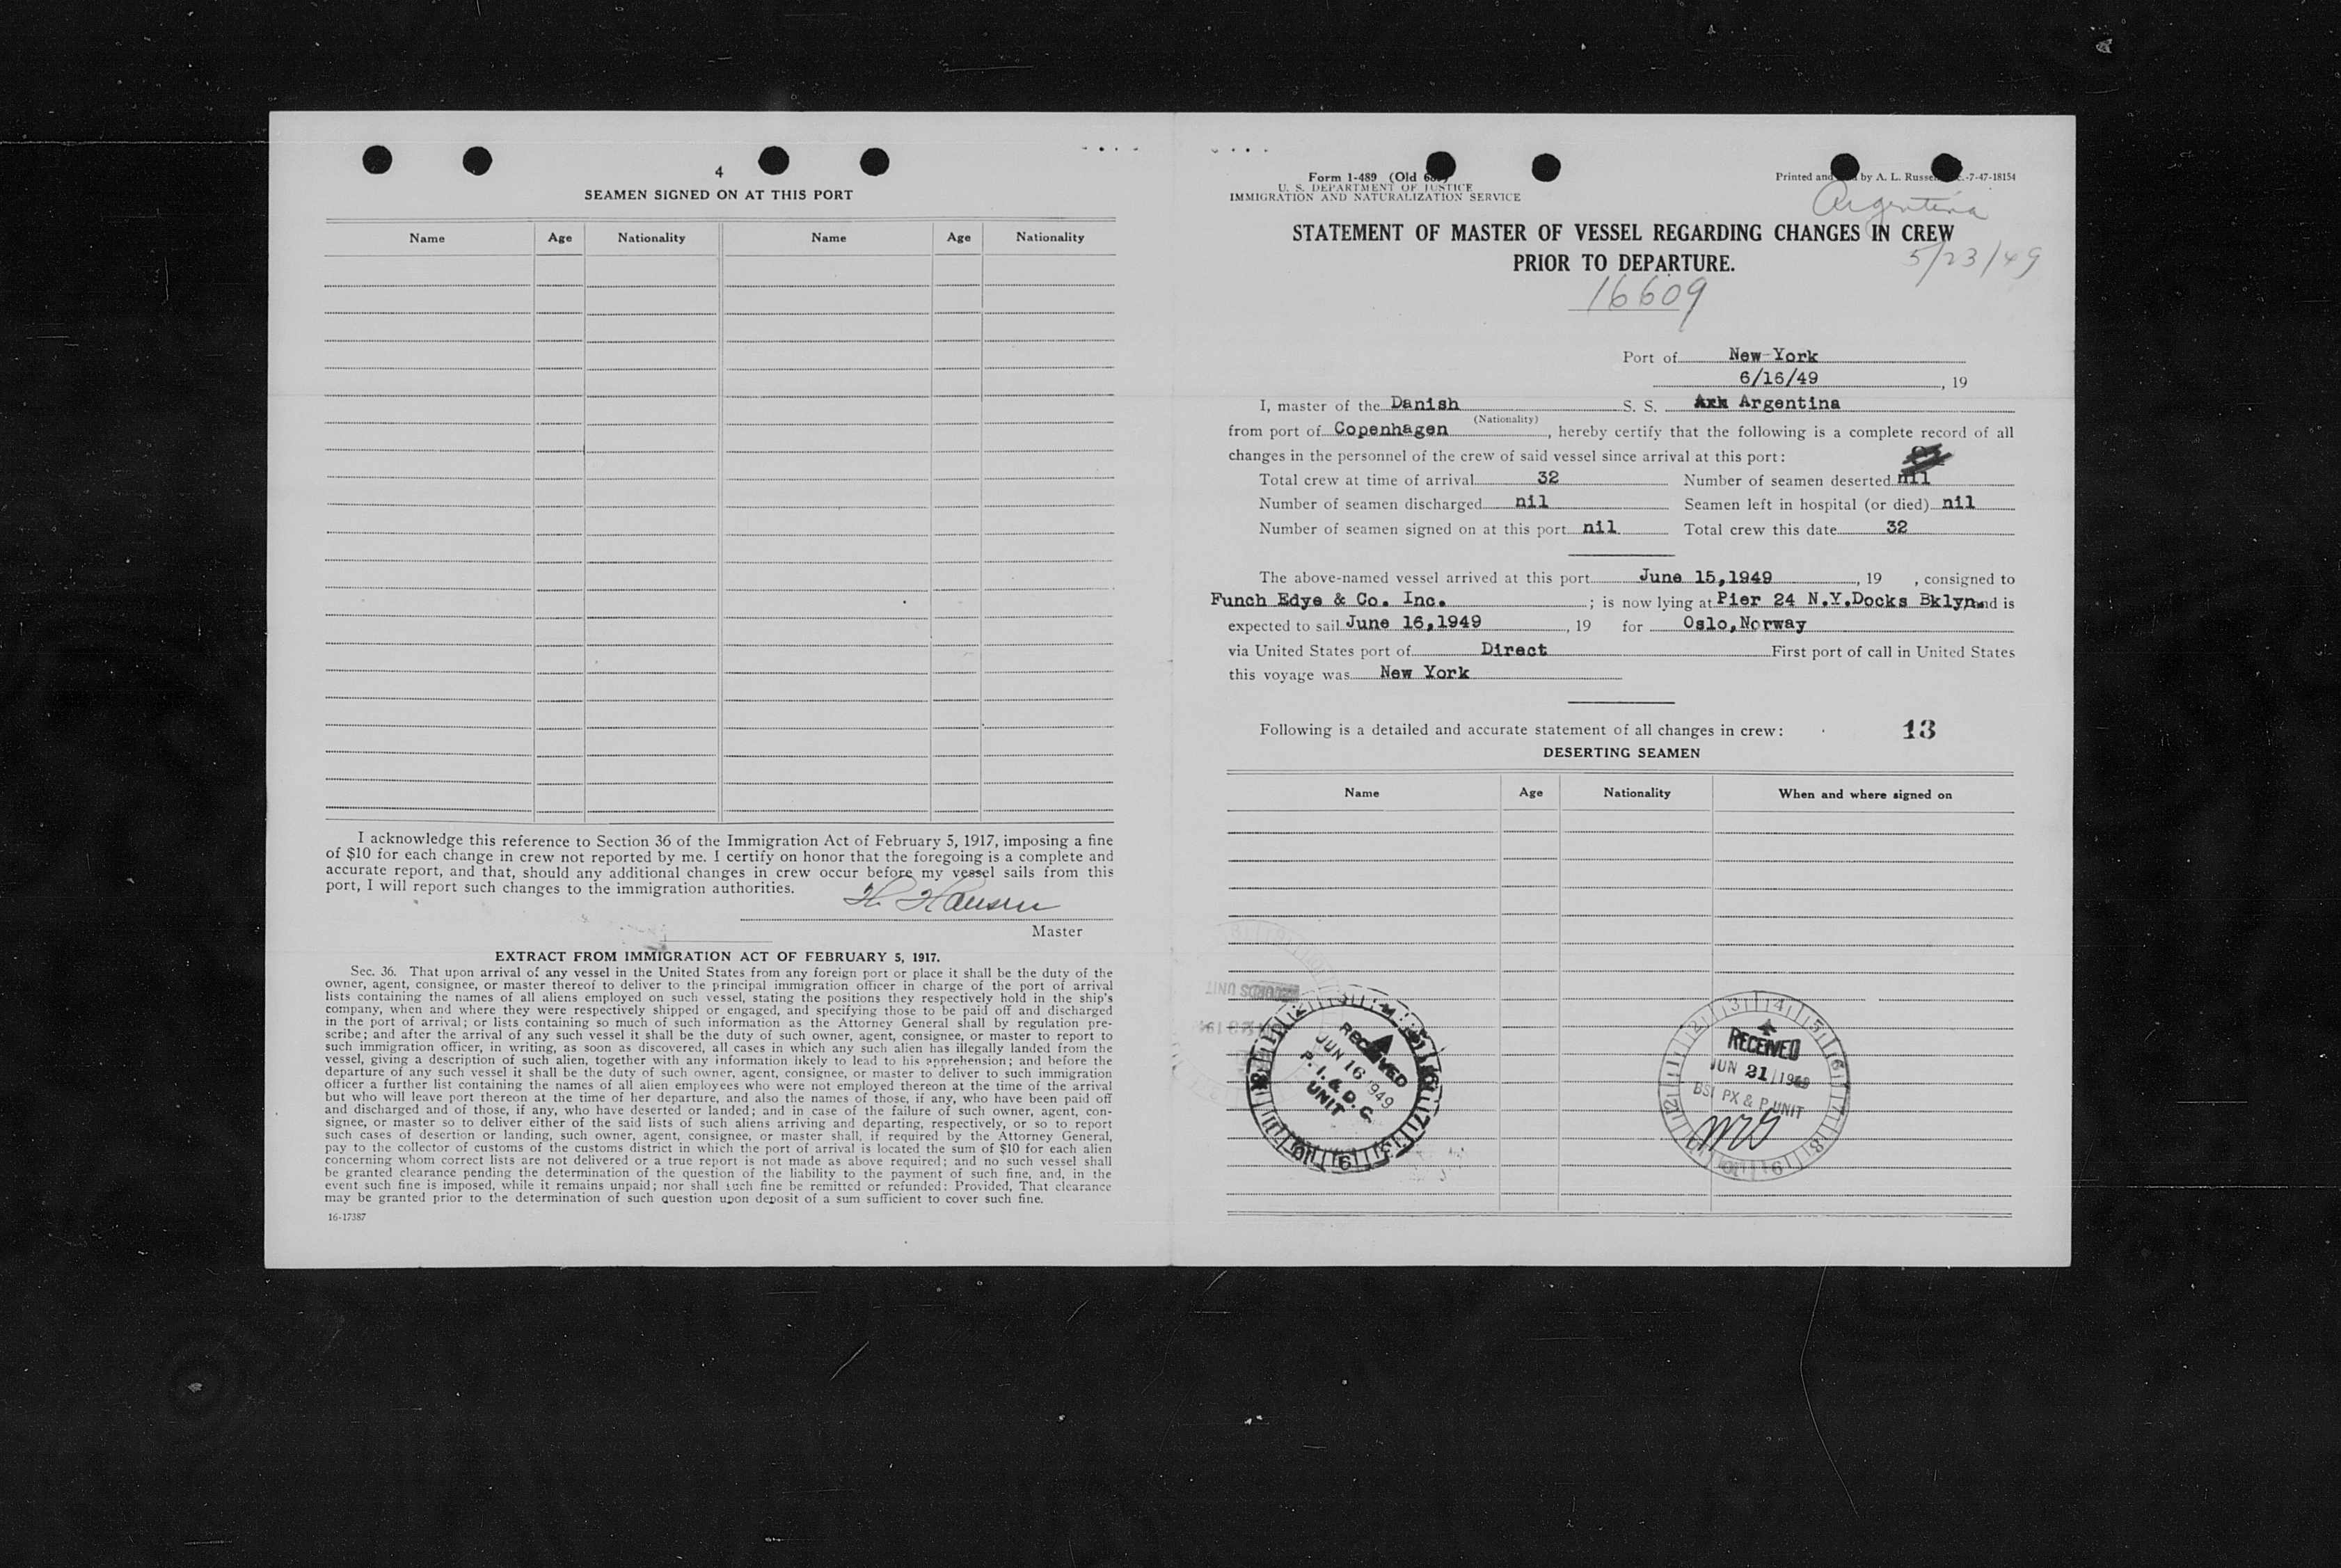 4
SEAMEN SIGNED ON AT THIS PORT
Name Age Nationality Name Age Nationality
I acknowledge this reference to Section 36 of the Immigration Act of February 5, 1917, imposing a fine
of $10 for each change in crew not reported by me. I certify on honor that the foregoing is a complete and
accurate report, and that, should any additional changes in crew occur before my vessel sails from this
port, I will report such changes to the immigration authorities.
H. Hansen
Master
EXTRACT FROM IMMIGRATION ACT OF FEBRUARY 5, 1917.
Sec. 36. That upon arrival of any vessel in the United States from any foreign port or place it shall be the duty of the
owner, agent, consignee, or master thereof to deliver to the principal immigration officer in charge of the port of arrival
lists containing the names of all aliens employed on such vessel, stating the positions they respectively hold in the ship's
company, when and where they were respectively shipped or engaged, and specifying those to be paid off and discharged
in the port of arrival; or lists containing so much of such information as the Attorney General shall by regulation pre-
scribe; and after the arrival of any such vessel it shall be the duty of such owner, agent, consignee, or master to report to
such immigration officer, in writing, as soon as discovered, all cases in which any such alien has illegally landed from the
vessel, giving a description of such alien, together with any information likely to lead to his apprehension; and before the
departure of any such vessel it shall be the duty of such owner, agent, consignee, or master to deliver to such immigration
officer a further list containing the names of all alien employees who were not employed thereon at the time of the arrival
but who will leave port thereon at the time of her departure, and also the names of those, if any, who have been paid off
and discharged and of those, if any, who have deserted or landed; and in case of the failure of such owner, agent, con-
signee, or master so to deliver either of the said lists of such aliens arriving and departing, respectively, or so to report
such cases of desertion or landing, such owner, agent, consignee, or master shall, if required by the Attorney General,
pay to the collector of customs of the customs district in which the port of arrival is located the sum of $10 for each alien
concerning whom correct lists are not delivered or a true report is not made as above required; and no such vessel shall
be granted clearance pending the determination of the question of the liability to the payment of such fine, and, in the
event such fine is imposed, while it remains unpaid; nor shall such fine be remitted or refunded: Provided, That clearance
may be granted prior to the determination of such question upon deposit of a sum sufficient to cover such fine.
16-17387
Form 1-489 (Old
U. S. DEPARTMENT OF JUSTICE
IMMIGRATION AND NATURALIZATION SERVICE
Printed and by A. L. Russell -7-47-18154
Argentina
STATEMENT OF MASTER OF VESSEL REGARDING CHANGES IN CREW
PRIOR TO DEPARTURE.
5/23/49
16609
Port of New York
6/16/49, 19
I, master of the Danish S. S. Argentina
(Nationality)
from port of Copenhagen, hereby certify that the following is a complete record of all
changes in the personnel of the crew of said vessel since arrival at this port:
Total crew at time of arrival 32 Number of seamen deserted nil
Number of seamen discharged nil Seamen left in hospital (or died) nil
Number of seamen signed on at this port nil Total crew this date 32
The above-named vessel arrived at this port June 15,1949, 19 , consigned to
Funch Edye & Co. Inc. ; is now lying at Pier 24 N.Y.Docks Bklyn. and is
expected to sail June 16,1949, 19 for Oslo,Norway
via United States port of Direct First port of call in United States
this voyage was New York
Following is a detailed and accurate statement of all changes in crew: 13
DESERTING SEAMEN
Name Age Nationality When and where signed on
RECEIVED
JUN 16 1949
P. I. & D. C.
UNIT
RECEIVED
JUN 21 1949
BSI PX & P UNIT